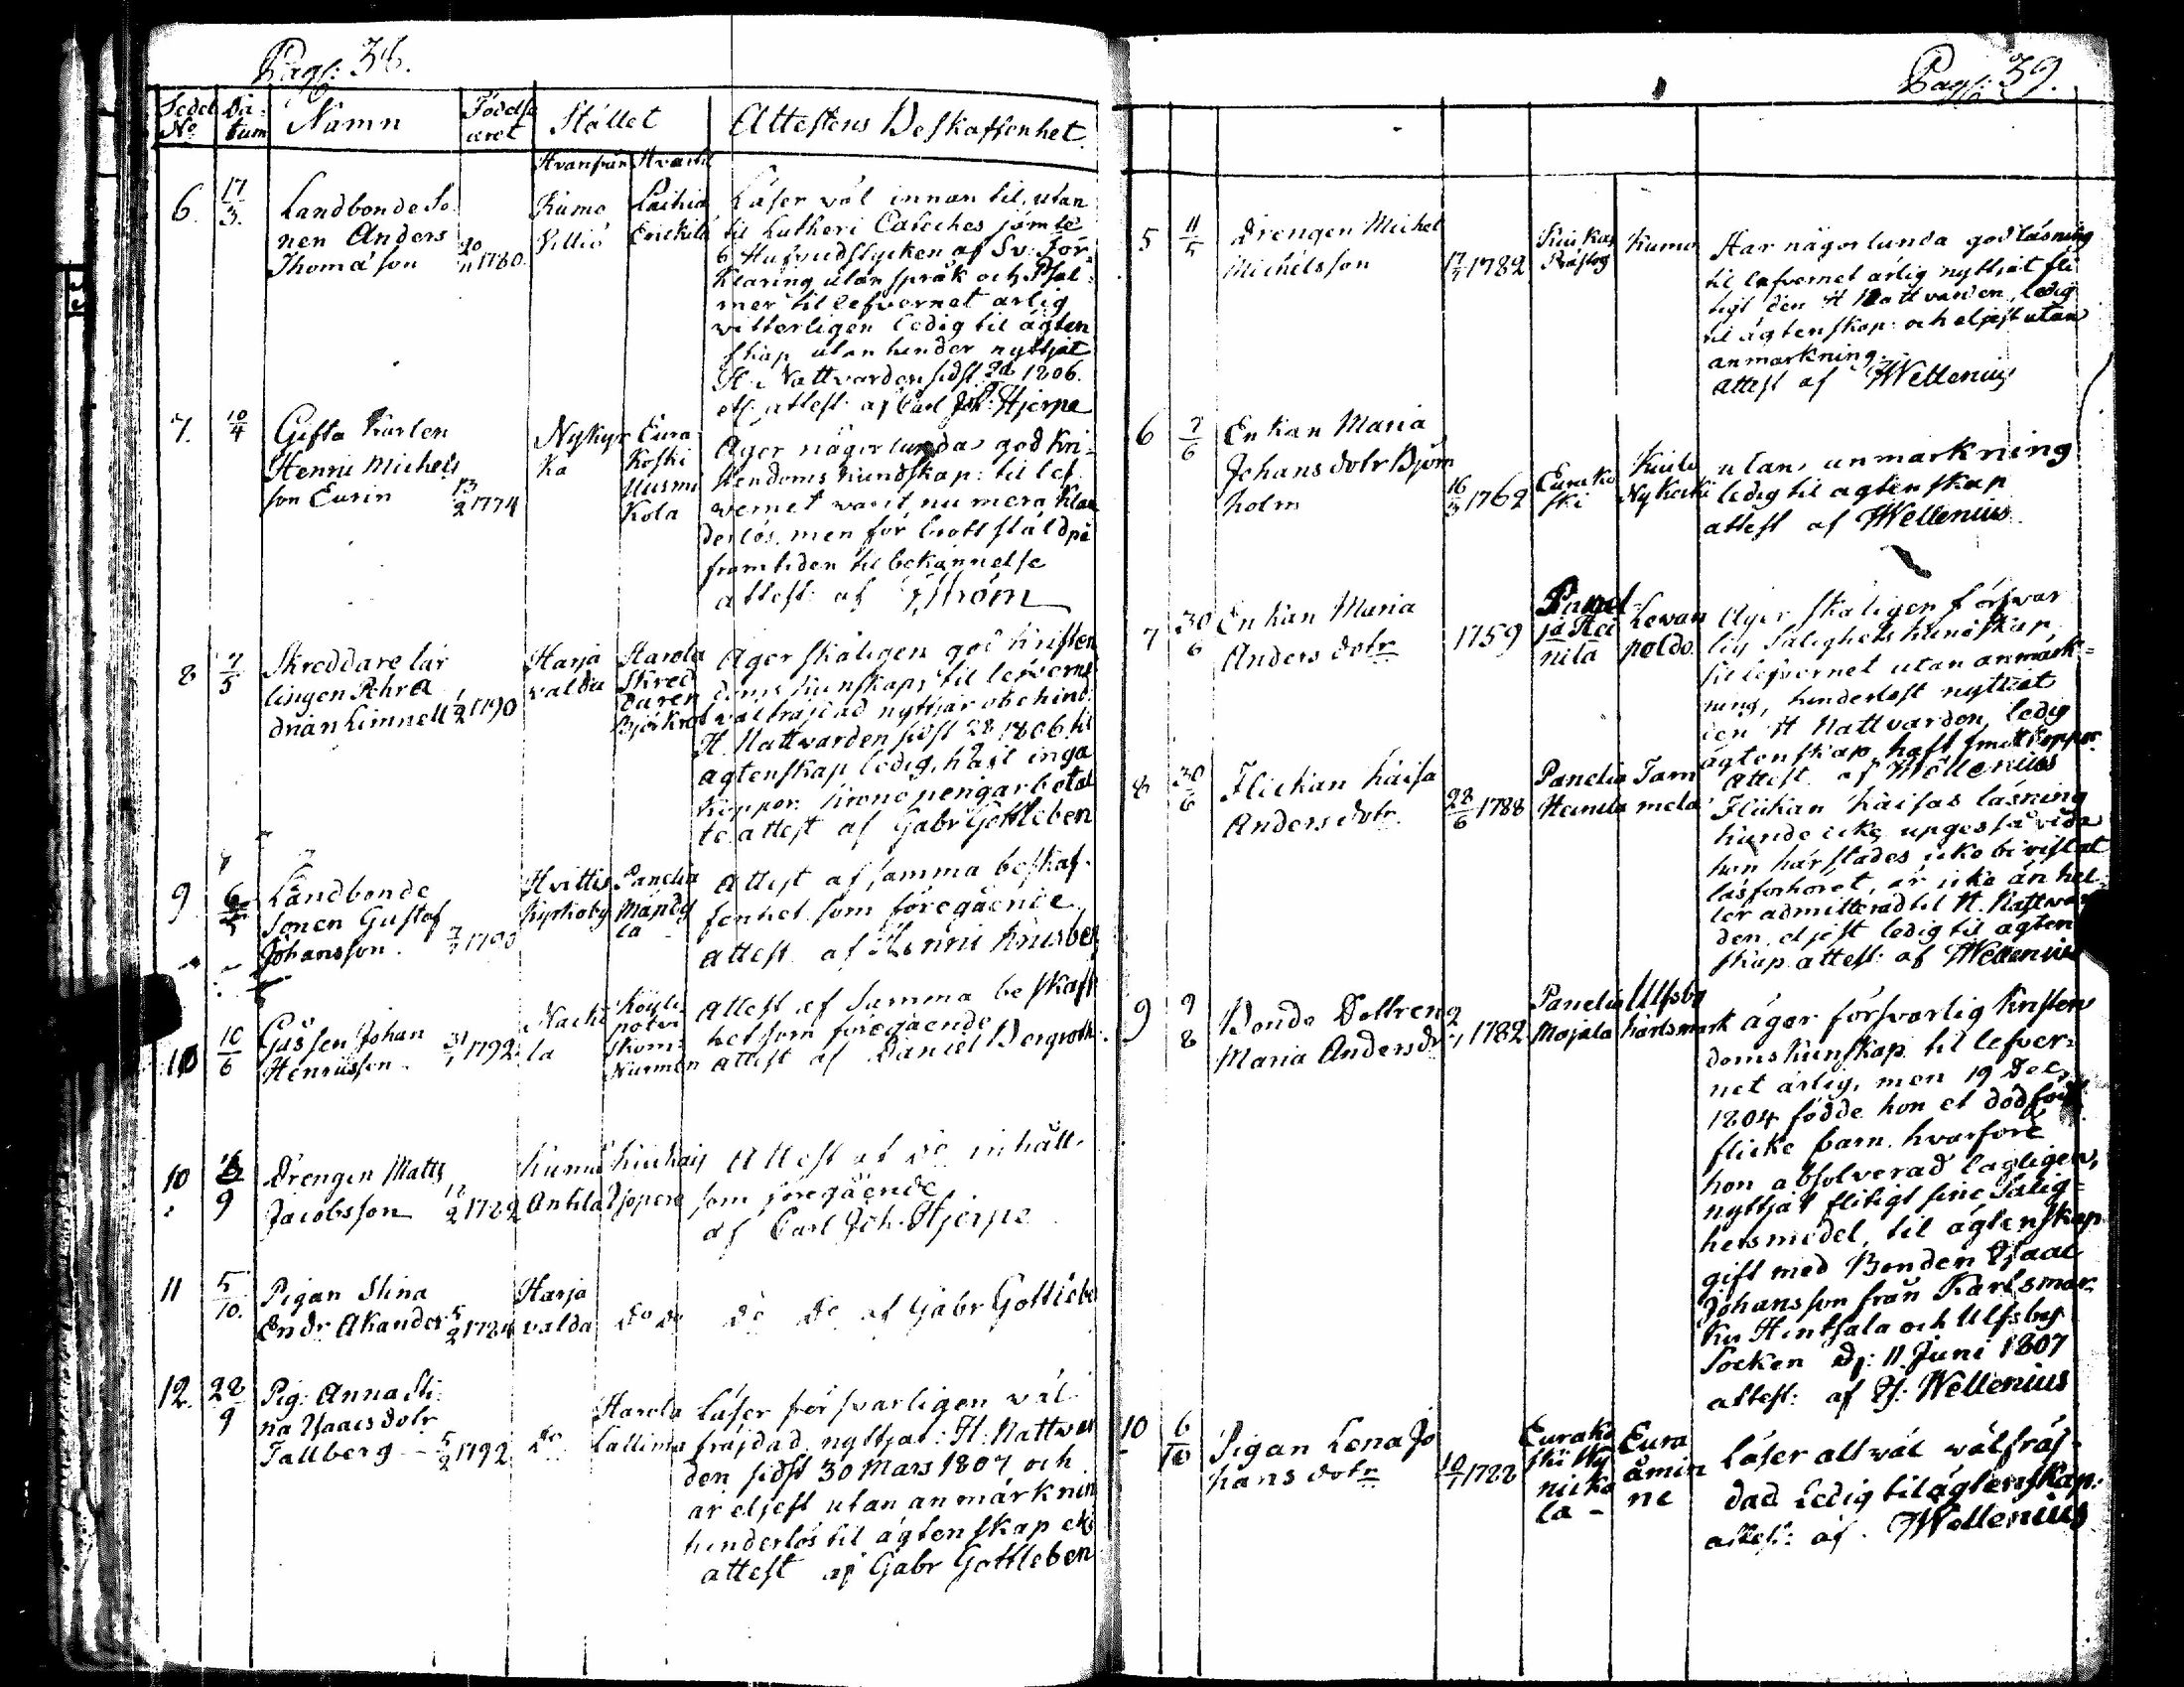 Pag: 38.
Sedel No Da-tum Namn Födelse aret Stället Attestens Beskaffenhet
Hvarifrån Hvartil
6. 17/3. Landbonde So-
nen Anders
Thomasson 1780.
Kumo
Villiö
Läser väl innan til, utan
til Lutheri Cateches jämte
6 Hufvudstycken af Sv: För-
klaring utan språk och Psal-
mer til lefvernet ärlig
vitterligen ledig til ägten
skap utan hinder nyttjat
H. Nattvarden sidst 1806.
attest af Carl Joh: Hjerpe
7. 10/4 Gifta Karlen
Henric Michels
son Eurin 13/2 1774
Nykyr
ka
Eura
Koski
Kola
Äger någorlunda god kri-
stendoms kundskap: til lef
vernet varit nu mera klan
derlös, men för brott stäld på
framtiden til bekännelse
attest af
8 7/5 Skreddare lär
lingen Pehr A
drian Limnell 1790
Harja
valda
Harola
Skred
daren
Äger skäligen god kristen
doms kunskap, til leverne
välfräjdad nyttjar obehind
H. Nattvarden sidst 1806 til
ägtenskap ledig, haft inga
Koppor. Krono pengar betal
te attest af Gabr Gottleben
9 Landbonde
Sonen Gustaf
Johansson.
Hvittis
Kyrkoby
Panelia
la
Attest af samma beskaf-
fenhet som föregående
attest af Henric
10 10/6 Gåssen Johan
Henricsson. 31/1 1792
la
Nurmen
Attest af Samma beskaff
het som föregående
attest af Daniel Bergroth
10 9 Drengen Matts
Jacobsson 1782
Kumo
Anttila
Attest af do inhält
som föregående
af Carl Joh. Hjerpe
11 5/10. Pigan Stina
Akander 5/2 1784
Harja
valda
do do
do do af Gabr Gottlebe
12. 28/9 Pig: Anna Sti-
na Isaacsdotr
Tallberg - 5/2 1792
do
Harola
Läser försvarligen väl
fräjdad nyttjat: H: Nattvar
den sidst 30 Mars 1807 och
är eljest utan anmärknin
hinderlös til ägtenskap
attest af Gabr Gottleben
Pag: 39.
5 11/5 Drengen Michel
Michelsson 1782
Kiukas
Kumo
Har någorlunda god läsning
til lefvernet ärlig nyttjat fli
tigt den H Nattvarden, ledig
til ägtenskap och eljest utan
anmärkning.
attest af Wellenius
6 7/6 Enkan Maria
Johansdotr Björn
holm 16/3 1762
Eura Ko
ski
utan anmärkning
ledig til ägtenskap
attest af Wellenius
7 30/6 Enkan Maria
Andersdotr 1759
Panel
ia Hei
nila
Levan
poldo
Äger skäligen försvar
lig Salighets kunskap,
til lefvernet utan anmärk-
ning, hinderlöst nyttjat
den H Nattvarden, ledig
ägtenskap haft smittkoppor
attest af Wellenius
8 30/6 Flickan Kaisa
Andersdotr. 28/6 1788
Panelia
Heinila
Tam
mela
Flickan Kaisas läsning
kunde icke upges så vida
hon härstädes icke bivistat
läsförhöret, är icke än hel-
ler admitterad til H. Nattvar
den, eljest ledig til ägten
skap attest: af Wellenius
9 9/8 Bonde Dottren
Maria Andersdr 1782
Panelia
Mojala
Ulfsby
Karlsmark
äger försvarlig Kristen
doms kunskap til lefver-
net ärlig, men 19 Dec
1804 födde hon et dödfödt
flicke barn. hvarföre
hon absolverad lagligen,
nyttjat flitigt sine Salig-
hetsmedel, til ägtenskap
gift med Bonden Isaac
Johansson från Karlsmar-
ku Hintsala och Ulfsby
Socken d: 11 Juni 1807
attest: af Is: Wellenius
10 6/10 Pigan Lena Jo
hansdotr 1788
Eura Ko
ski
la -
Eura
åmin
ne
läser alt väl välfräj-
dad Ledig til ägtenskap.
attest: af Wellenius